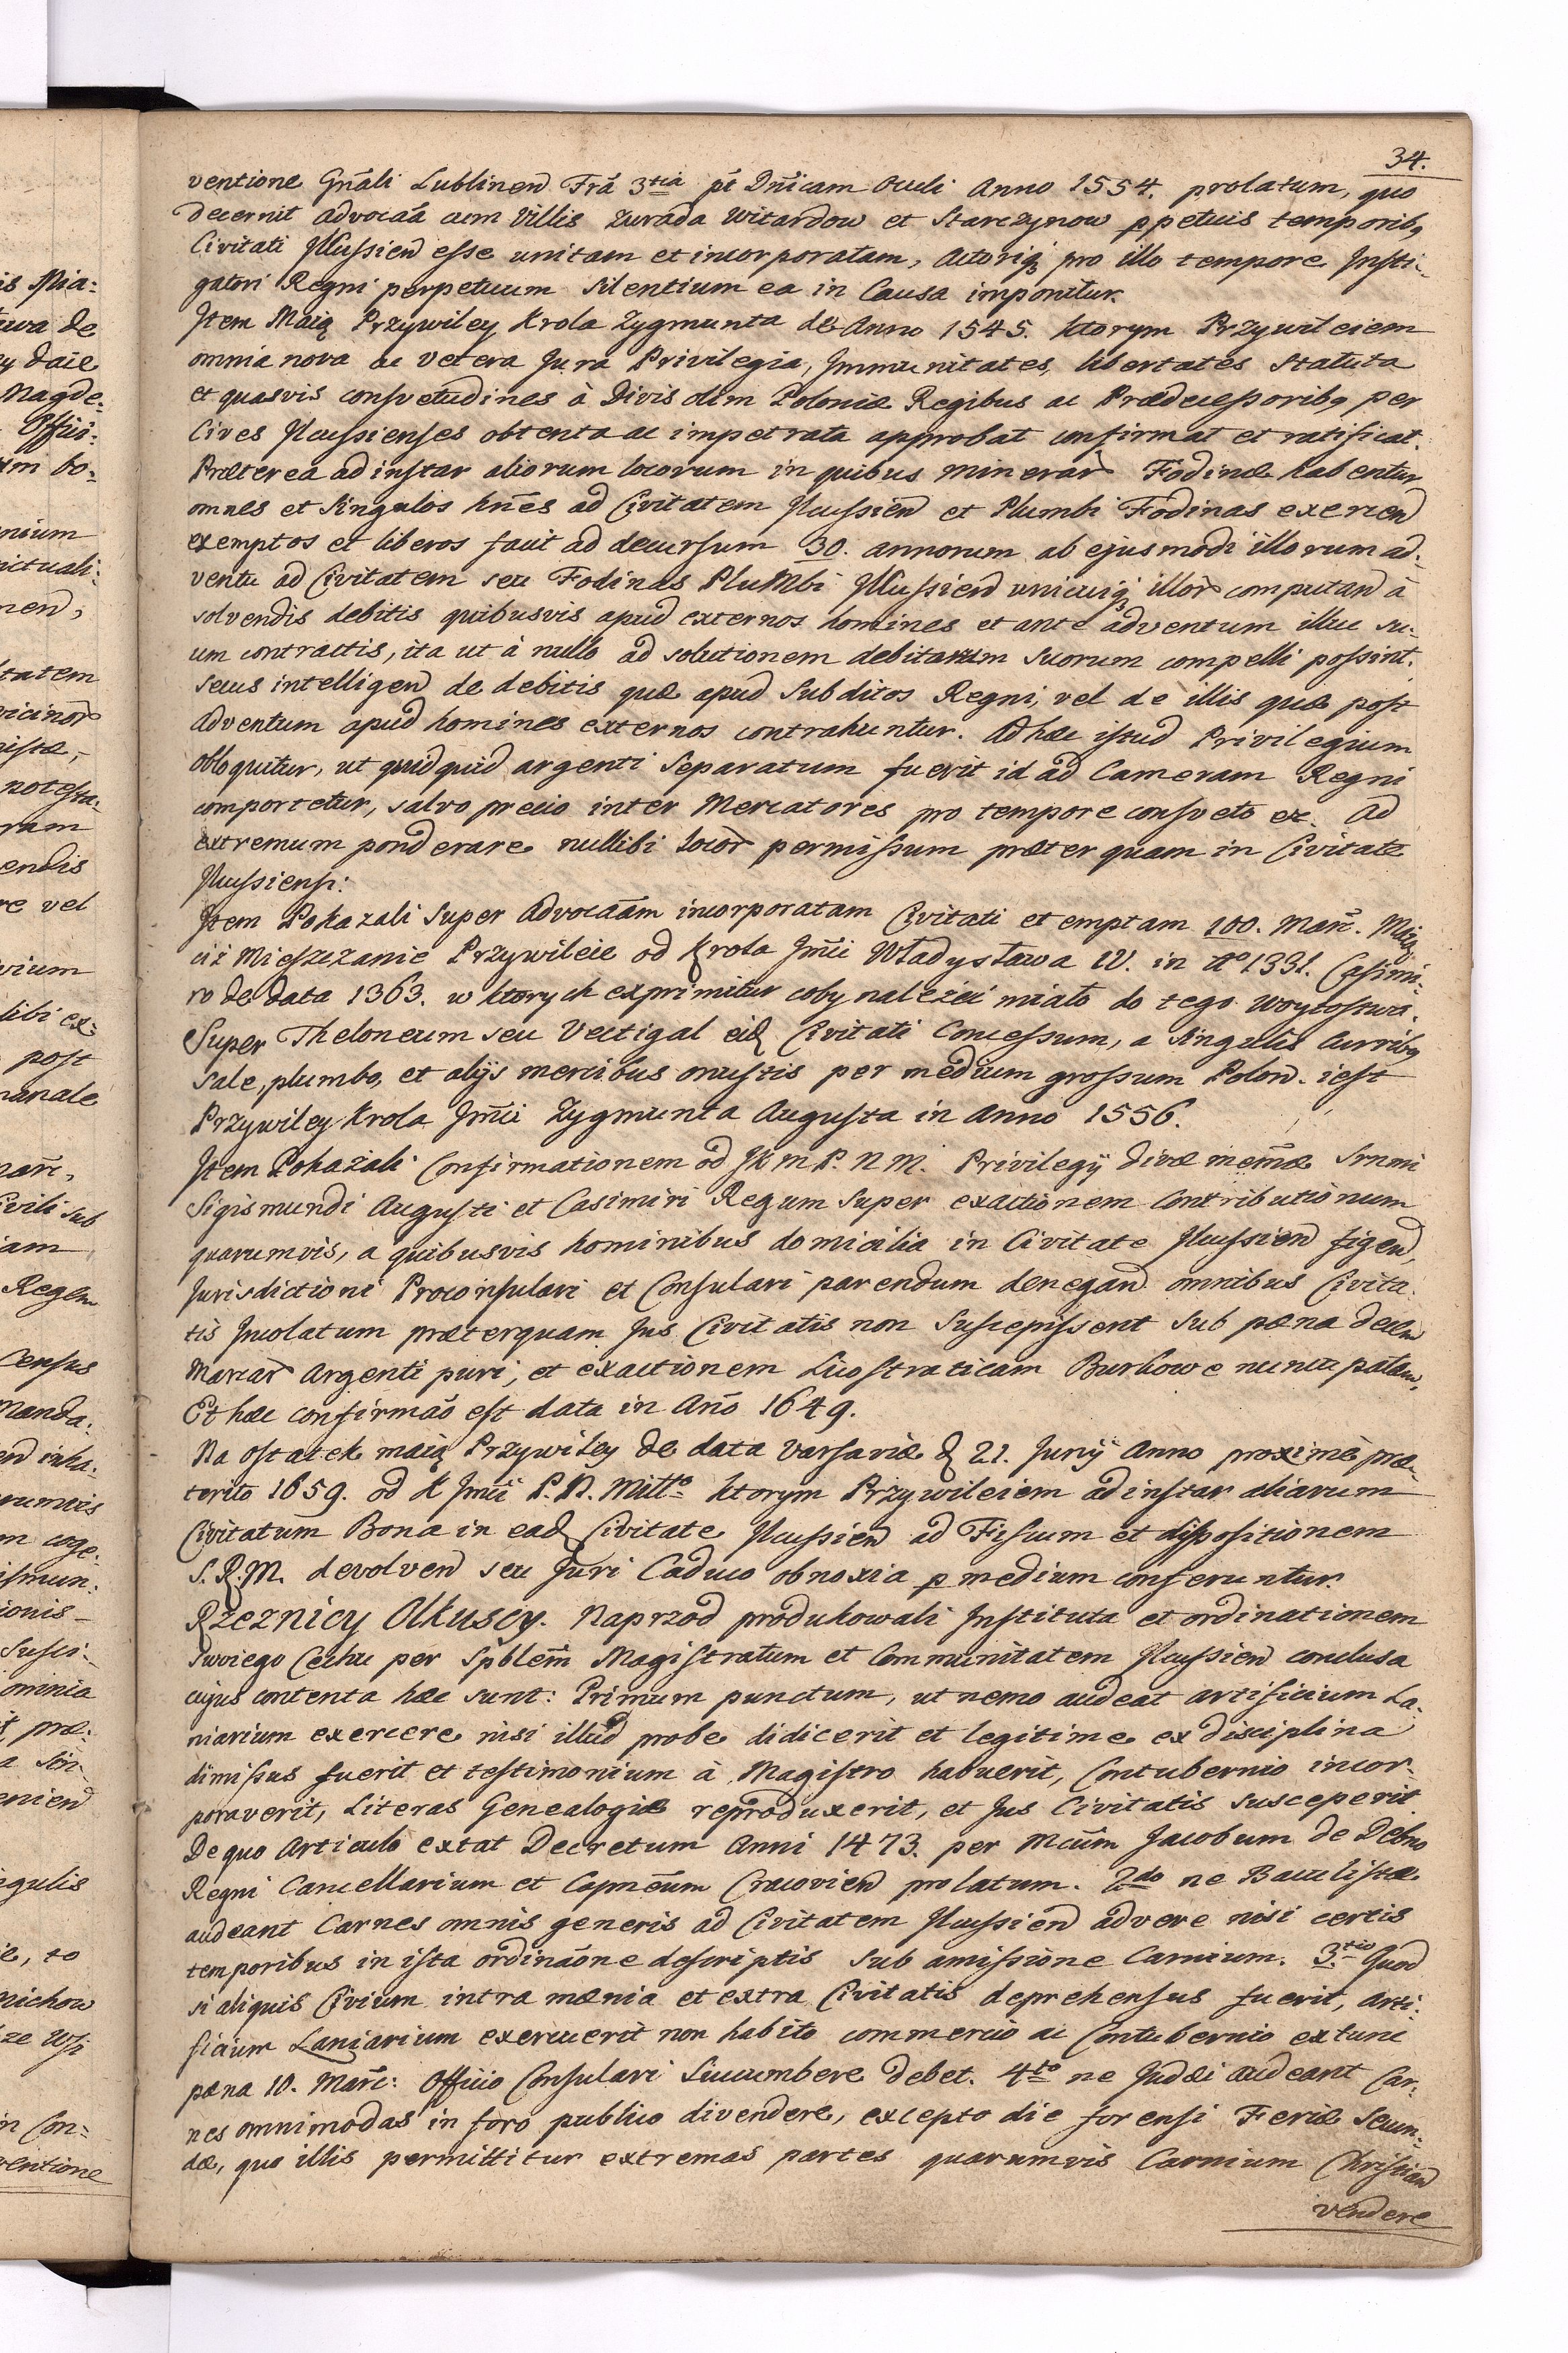 34.
ventione Gñali Lublinen Frã 3tia pt Dnicam Oculi Anno 1554. prolatum, quo
decernit advocaãa cum Villis Zurada Witardow et Starczynow ppetuis temporibq
Civitati Ilkussien esse unitam et incorporatam, Actoriq pro illo tempore Insti-
gatori Regni perpetuum Silentium ea in Causa imponitur.
Item Maią Przywiley Krola Zygmunta de Anno 1545. ktorym Przywileiem
omnia nova ac vetera Jura Privilegia, Immunitates, libertates Statuta
et quasvis consvetudines à Divis olim Poloniæ Regibus ac Prædecessoribq per
Cives Ilkussienses obtenta ac impetrata approbat confirmat et ratificat.
Præterea ad instar aliorum locorum in quibus Minerar Fodinæ habentur
omnes et Singulos hñes ad Civitatem Ilkussien et Plumbi Fodinas exercen
exemptos et liberos facit ad decursum 30. annorum ab ejusmodi illorum ad-
ventu ad Civitatem seu Fodinas Plumbi Ilkussien unicuiq illor computan à
solvendis debitis quibusvis apud externos homines et ante adventum illuc su-
um contractis, ita ut à nullo ad solutionem debitorum suorum compelli possint.
secus intelligen de debitis quæ apud Subditos Regni, vel de illis quæ post
adventum apud homines externos contrahuntur. Ad hæc istud Privilegium
obloquitur, ut quidquid argenti Separatum fuerit id ad Cameram Regni
comportetur, salvo precio inter Mercatores pro tempore consveto &c. Ad
extremum ponderare nullibi locor permissum præterquam in Civitate
Ilkussiensi:
Item Pokazali Super Advocaãm incorporatam Civitati et emptam 100. Marc. Maią
ciż Mieszczanie Przywileie od Krola Jmci Władysława IV. in Aº 1331. Casimi-
ro de data 1363. w ktorych exprimitur coby należeć miało do tego woytostwa.
Super Theloneum seu Vectigal eid Civitati Concessum, a Singulis Curribq
Sale, plumbo, et alijs mercibus onustis per medium grossum Polon. iest
Przywiley Krola Jmci Zygmunta Augusta in Anno 1556.
Item Pokazali Confirmationem od JKM P. N. M. Privilegij divæ memæ Srnmi
Sigismundi Augusti et Casimiri Regum super exactionem Contributionum
quarumvis, a quibusvis hominibus domicilia in Civitate Ilkussien figen,
Jurisdictioni Proconsulari et Consulari parendum denegan omnibus Civita-
tis Incolatum præterquam Jus Civitatis non Suscepissent sub pæna decem
Marcar Argenti puri, et exactionem Licostraticam Burkowe nuncupatam.
Et hæc confirmaõ est data in Añõ 1649.
Na ostatek maią Przywiley de data Varsaviæ d 21. Junij Anno proximè præ-
terito 1659. od K Jmci P. N. Miltº ktorym Przywileiem ad instar aliarum
Civitatum Bona in ead Civitate Ilkussien ad Fiscum et dispositionem
S. R. M. devolven seu Juri Caduco obnoxia p medium conferuntur.
Rzeznicy Olkuscy. Naprzod produkowali Instituta et ordinationem
Swoiego Cechu per Spblem Magistratum et Communitatem Ilkussien conclusa
cujus contenta hæc sunt: Primum punctum, ut nemo audeat artificium La-
niarium exercere nisi illud probe didicerit et legitime ex disciplina
dimissus fuerit et testimonium à Magistro habuerit, Contubernio incor-
poraverit, Literas Genealogiæ reproduxerit, et Jus Civitatis susceperit.
De quo Articulo extat Decretum Anni 1473. per Mcum Jacobum de Debno
Regni Cancellarium et Capneum Cracovien prolatum. 2do ne Baculistæ
audeant Carnes omnis generis ad Civitatem Ilkussien advere nisi certis
temporibus in ista ordinaõne descriptis sub amissione Carnium. 3tio Quod
si aliquis Civium intra mænia et extra Civitatis deprehensus fuerit, arti-
ficium Laniarium exercuerit non habito commercio ac Contubernio extunc
pæna 10. Marc: Officio Consulari Succumbere debet. 4to ne Judæi audeant Car-
nes omnimodas in foro publico divendere, excepto die forensi Feriæ Secun-
dæ, quo illis permittitur extremas partes quarumvis Carnium Christian
vendere